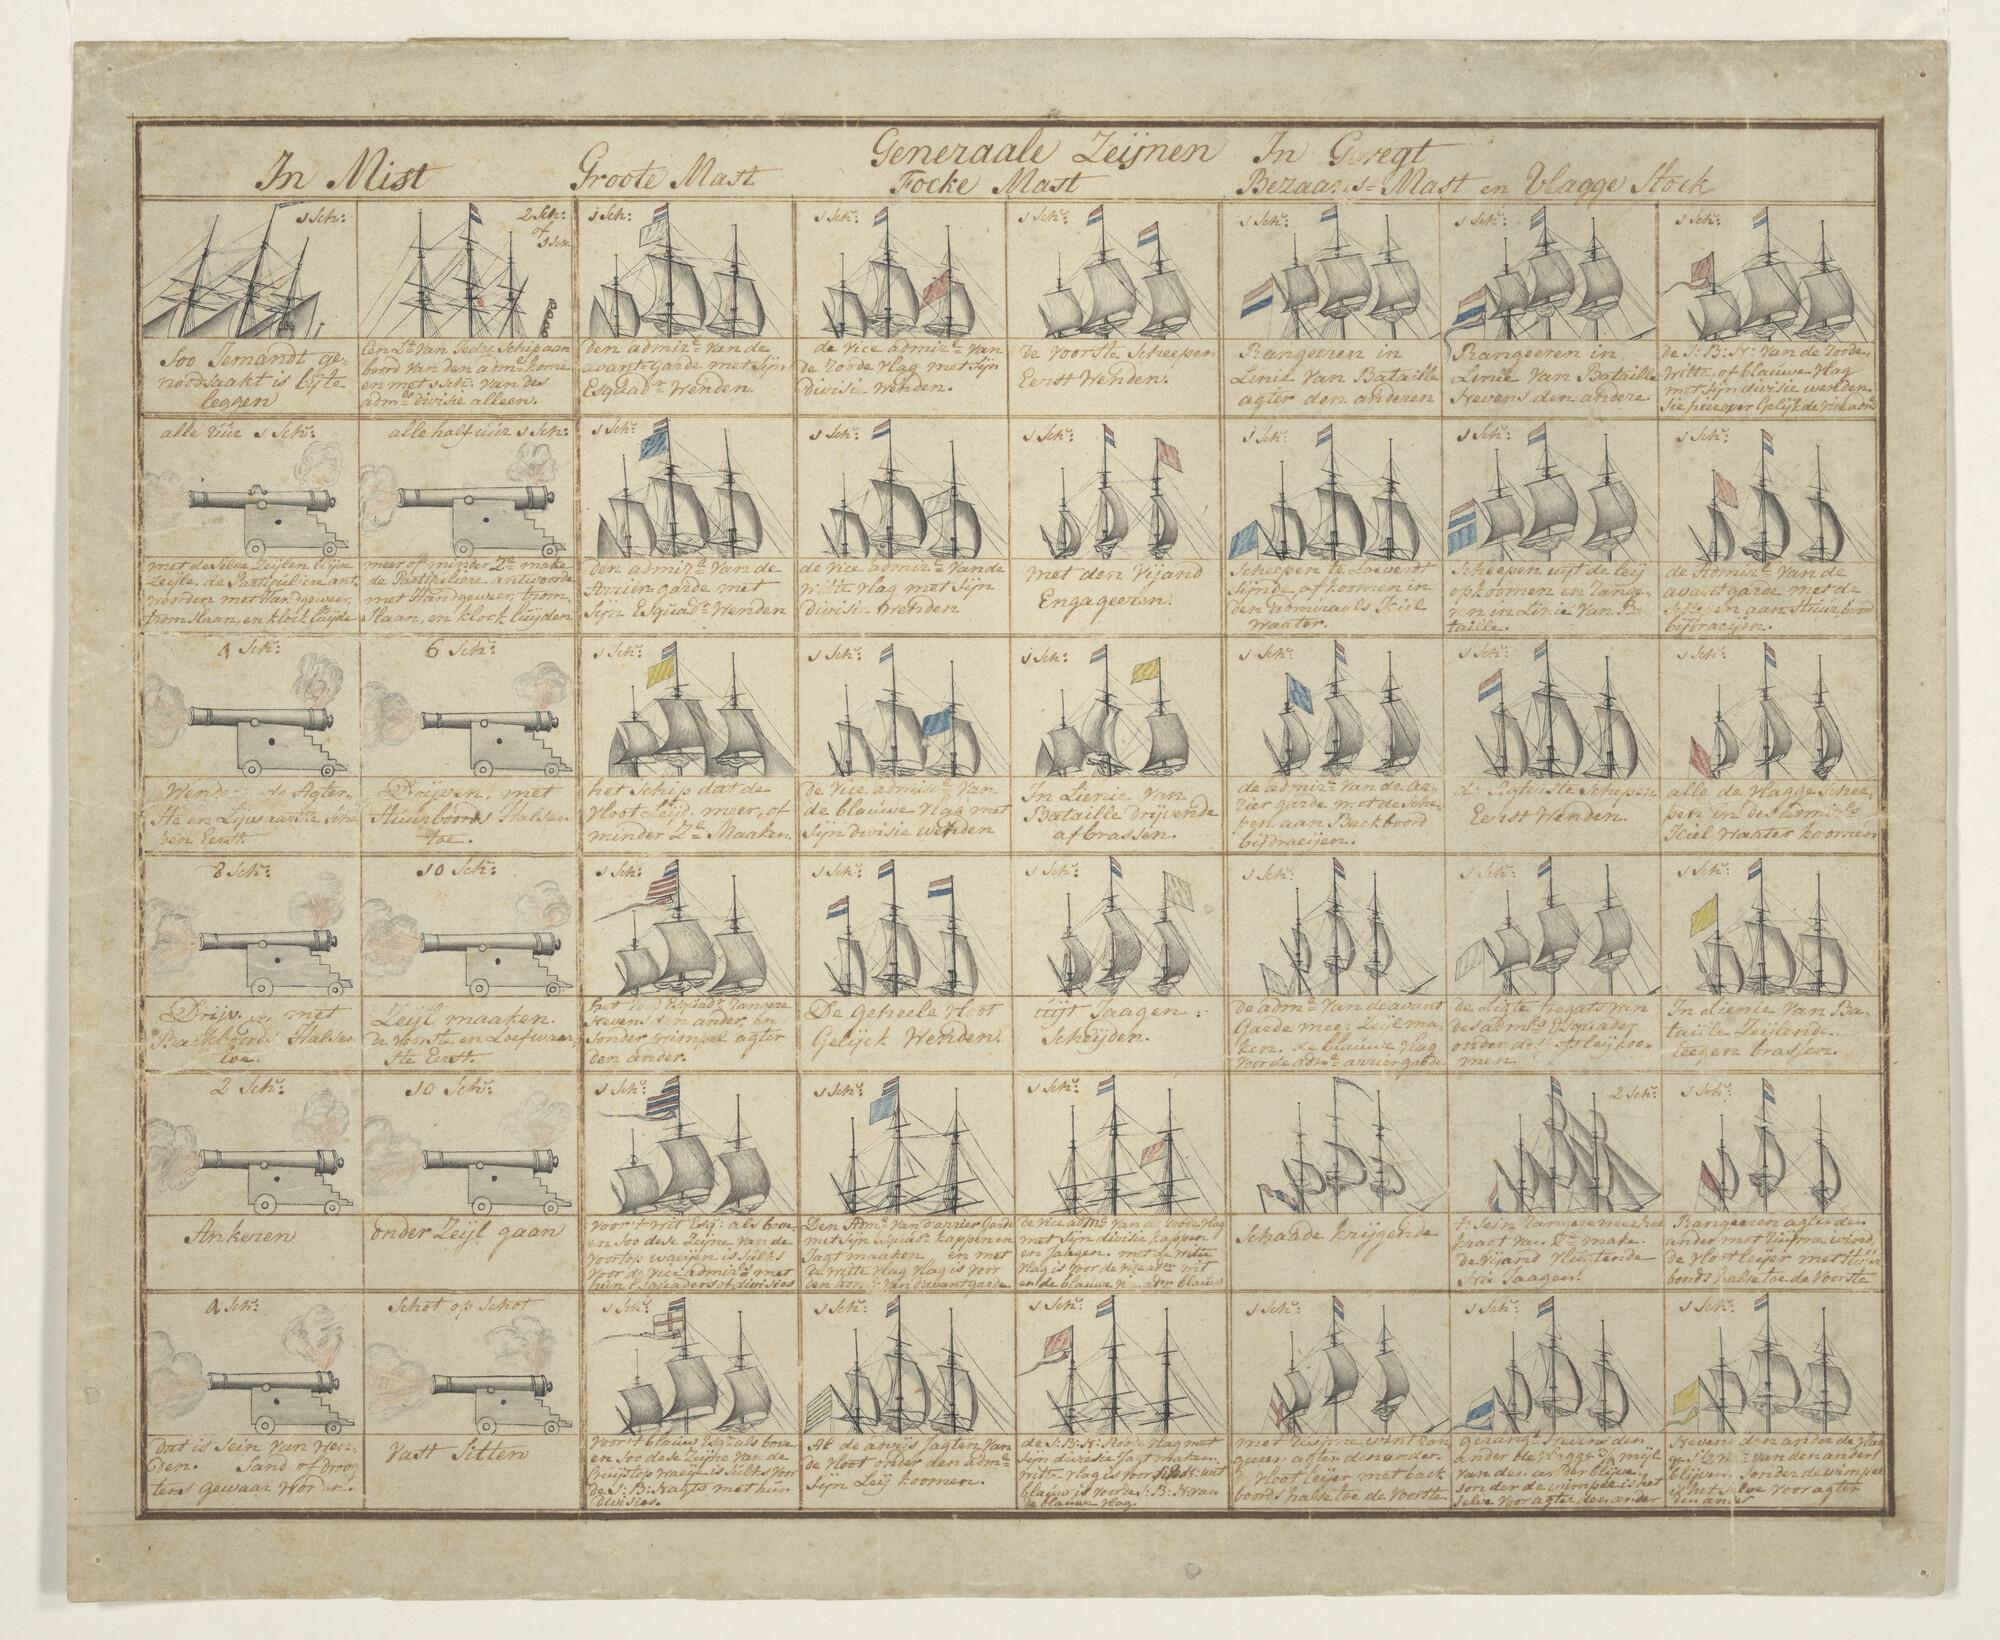 Generaale Zeijnen In Gevegt
In Mist
Groote Mast
Focke Mast
Bezaans=Mast en Vlagge Stock
1 Sch:
Soo Iemandt ge,
noodsaakt is bijte
leggen
2 Sch:
of
3 Sch
Een Lt van Ieder Schip aan
boord van den adml kome
en met 1 Sch: van des
admls divisie alleen.
1 Sch:
den admirl van de
avant-garde met Sijn
Esquadr Wenden.
1 Sch:
de vice admirl van
de Roode vlag met Sijn
divisie wenden.
1 Sch:
De voorste Scheepen
Eerst Wenden.
1 Sch:
Rangeeren in
Linie van Bataille
agter den anderen
1 Sch:
Rangeeren in
Linie van Bataille
Nevens den andere.
1 Sch:
de S: B: N: van de Roode,
Witte, of blauwe vlag
met sijn divisie wenden.
alle uur 1 Sch:
met deselve Zeijlen blijve
Zeijle. de Particuliere ant,
woorden met Handgeweer,
trom Slaan, en klock luijde
alle half uur 1 Sch:
meer of minder Zl make
de Particuliere antwoorde
met Handgeweer, trom
Slaan, en klock luijden
1 Sch:
den admirl van de
Arrier garde met
Sijn Esquadr Wenden
1 Sch:
de vice admirl van de
witte vlag met Sijn
Divisie Wenden
1 Sch:
met den Vijand
Engageeren.
1 Sch:
Scheepen te Loevert
Sijnde, of koomen in
den admiraals Kiel
waater.
1 Sch:
Scheepen uijt de leij
opkoomen en Range-
ren in Linie van Ba
taille.
1 Sch:
de Admirl van de
avantgarde met de
Schepen aan Stuur boord
bijdraeijen.
4 Sch:
Wenden de Agter,
Ste en Lijwaarste Sche
pen Eerst.
6 Sch:
Drijven, met
Stuurboords Halsen
toe.
1 Sch:
het Schip dat de
vloot Leijd, meer, of
minder Zl Maaken.
1 Sch:
De vice admirl van
de blauwe vlag met
Sijn divisie wenden
1 Sch:
In Lienie van
Bataille Drijvende
af brassen.
1 Sch:
de admirl van de Ar-
rier garde met de Sche-
pen aan Backboord
bijdraeijen.
1 Sch:
de Agterste Schepen
Eerst Wenden.
1 Sch:
alle de vlagge Schee-
pen in des admirls
Kiel waater koomen
8 Sch:
Drijven, met
Backboords Halsen
toe.
10 Sch:
Zeijl maaken.
de voorste en Loefwaar,
ste Eerst.
1 Sch:
Nevens den ander, En
Sonder wimpel agter
den ander.
1 Sch:
De geheele vloot
Gelijck Wenden.
1 Sch:
uijt Jaagen
Scheijden.
1 Sch:
de adml van de avant
Garde meer Zeijl ma,
ken. de blauwe vlag
voor de adml arriergarde
1 Sch:
de Ligte fregats van
des admls Esquader
onder de S: op leij koo-
men
1 Sch:
In Lienie van Ba-
taille Zeijlende
teegen brassen.
2 Sch:
Ankeren
10 Sch:
onder Zeijl gaan
1 Sch:
voor 't wit Esq: als bove-
en Soo dese Zeijne van de
voortop waeijen is Sulks
voor de vice admirls met
hun Esquaders of divisies
1 Sch:
Den Adml van d'arrier Garde
met Sijn Esquadr kappen en
Jagt maaken en met
de witte vlag vlag is voor
den adml van d'avantgarde.
1 Sch:
de vice adml van de Roode vlag
met Sijn divisie kappen
en Jaagen. met de witte
vlag is voor de vice adml wit
en de blauwe vice adml blauw
Schaade krijgende
2 Sch:
kragt van Zl make.
de Vijand vlugtende
Jaagen.
1 Sch:
Rangeeren agter den
ander met Ruijme wind,
de vlootleijer met Stuur
boords halse toe de voorste
4 Sch:
Dat is Sein van Wen-
den. Sand of Droog
tens gewaar worden.
Schot op Schot
Vast Sitten
1 Sch:
voor 't blauw Esqr als bove
en Soo dese Zeijne van de
Kruijstop waeije is Sulks voor
de S: B: Nagts met hun
divisies.
1 Sch:
Al de avijs Jagten van
de vloot onder den adml
Sijn Leij koomen.
1 Sch:
de S: B: N: Roode vlag met
Sijn divisie Jagt maken.
witte vlag is voor S: B: N: wit
blauw is voor de S: B: N: van
de blauwe vlag.
1 Sch:
met Ruijme wint ran
geeren agter den order.
de vlootleijer met back
boords halse toe de voorste
1 Sch:
gerangt Nevens den
ander
van den ander blijve.
Sonder de wimpel is het
Selve voor agter den ander
1 Sch:
Nevens den ander de vlag
van den ander
blijven. Sonder de wimpel
is het Selve voor agter
den ander